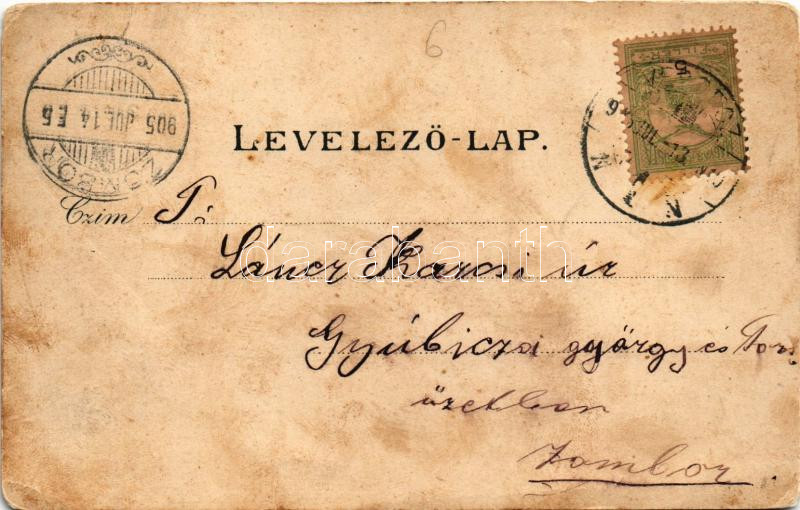 6
5 FILLÉR
905 JUL.14 E5
ZOMBOR
LEVELEZŐ-LAP.
Czim T.
Láncz Karcsi úr
Gyúbicza györgy és Tár.
üzletben
Zombor
darabanth